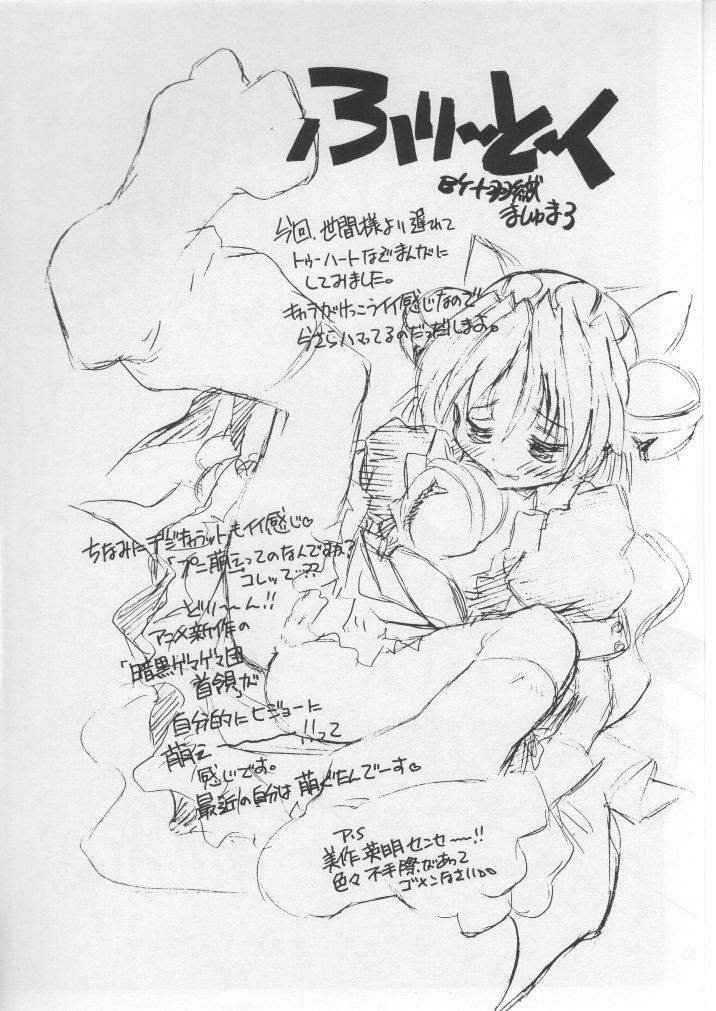 ふりーとーく
ましゅまろ
今回、世間様より遅れて
トゥーハートなどまんがに
してみました。
キャラがけっこうイイ感じなので
今さらハマってるのだっだしまよ。
ちなみにデジキャラットもイイ感じ♡
「プニ萌えってのなんですね?
コレッて…??
どりーーん!!
アニメ新作の
「暗黒ゲマゲマ団
首領」が
自分的にヒジョーに
萌え ー!!って
感じです。
最近の自分は萌ぐたんでーす♡
P.S
美作英明センセー!!
色々不手際があって
ゴメンなさい